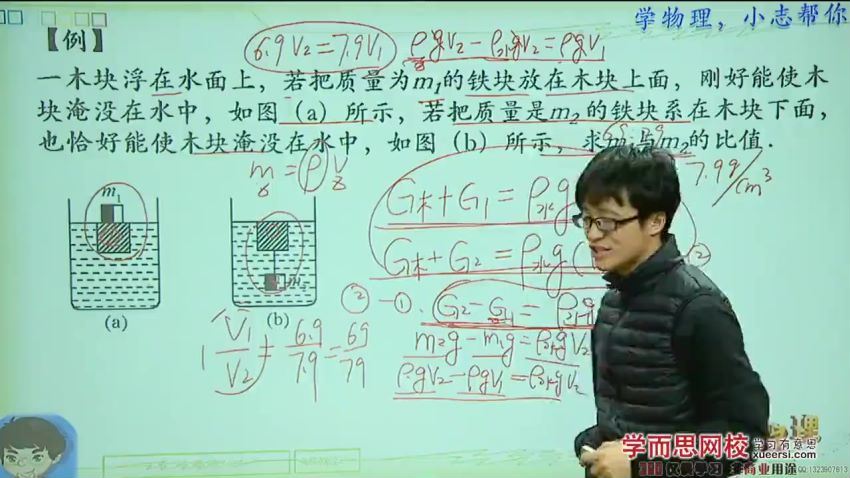 学物理，小志帮你
【例】
6.9V₂=7.9V₁ ρgV₂-ρ水gV₂=ρgV₁
一木块浮在水面上，若把质量为m₁的铁块放在木块上面，刚好能使木
块淹没在水中，如图（a）所示，若把质量是m₂的铁块系在木块下面，
也恰好能使木块淹没在水中，如图（b）所示，求m₁与m₂的比值．
m=ρV
7.9g/cm³
m₁
G木+G₁=ρ水g
G木+G₂=ρ水g(
②
(a)
(b)
②-①. G₂-G₁=ρ水g
V₁/V₂=6.9/7.9=69/79
m₂g-m₁g=ρ水gV₂
ρgV₂-ρgV₁=ρ水gV₂
学而思网校
学习有意思
xueersi.com